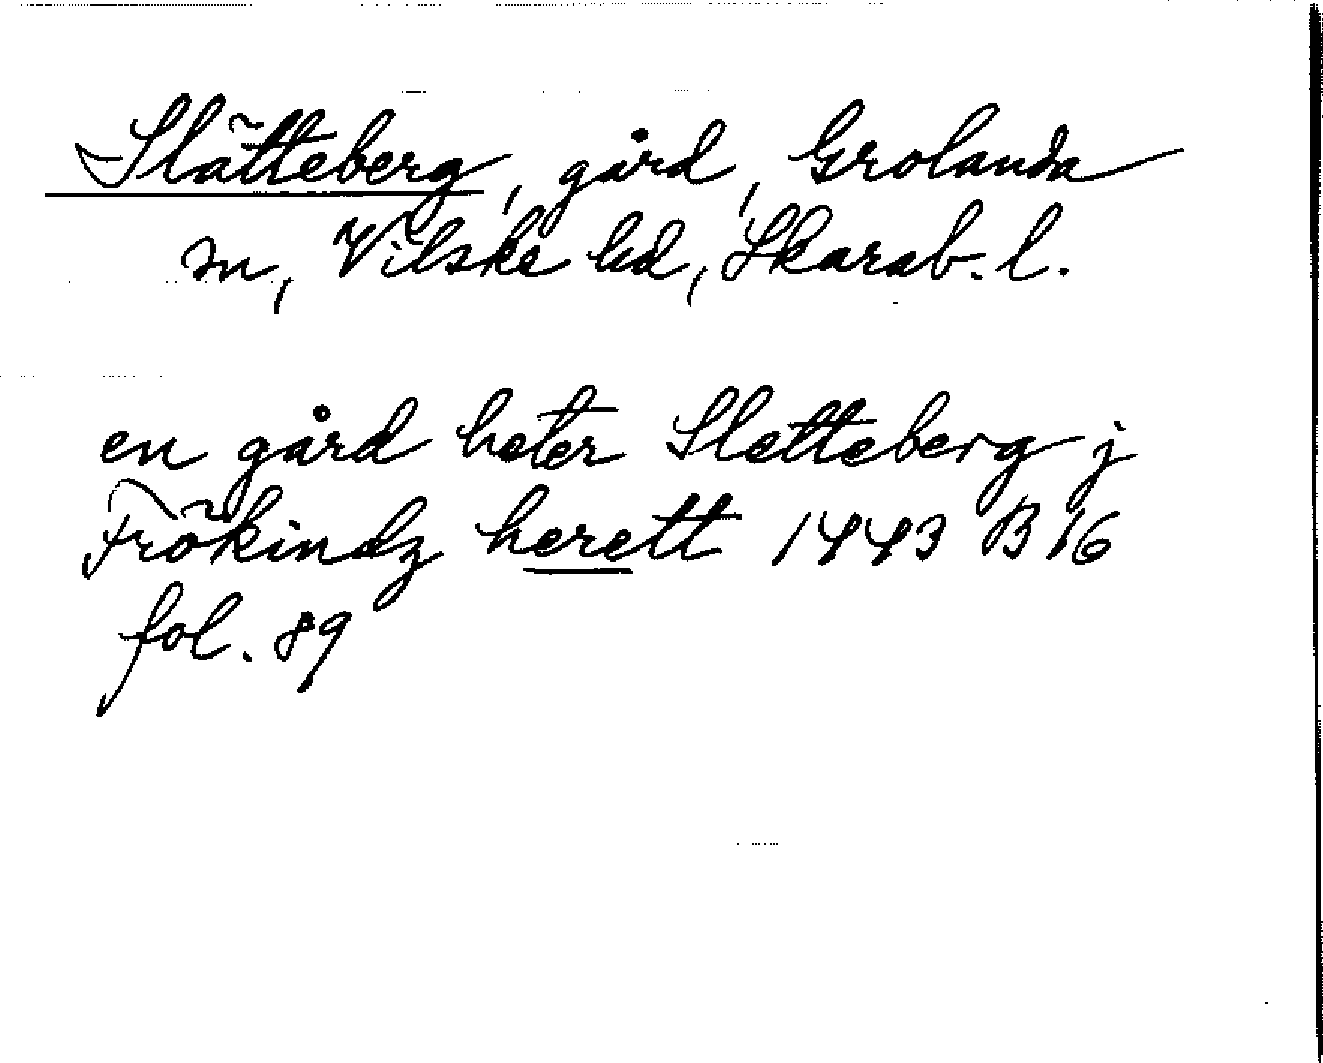 Slätteberg, gård, Grolanda
sn, Vilske hd, Skarab. l.
en gård heter Sletteberg j
Frökindz herett 1443 B 16
fol. 89